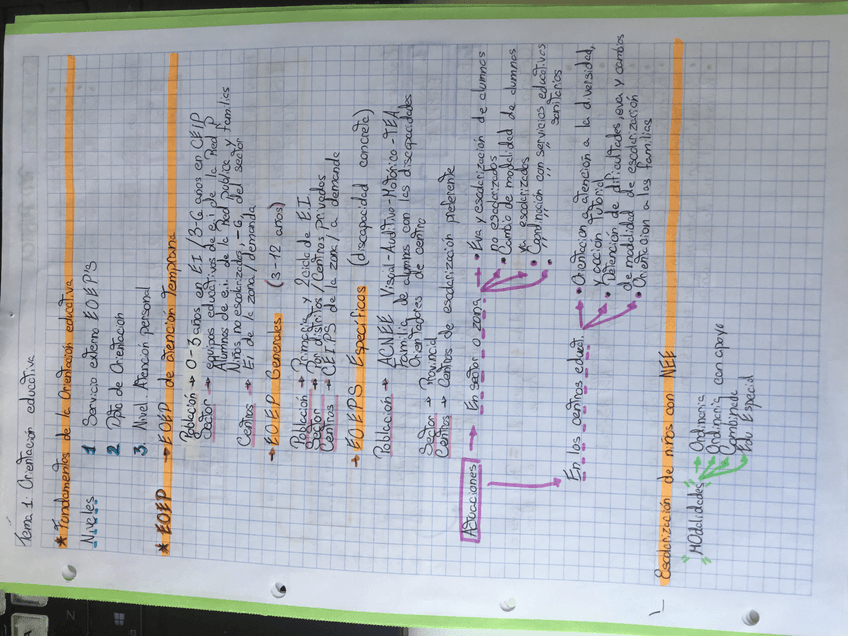 Tema 1. Orientación educativa
* Fundamentos de la Orientación educativa
Niveles
1 Servicio externo EOEP's
2 Dpto de Orientación
3. Nivel Atención personal
* EOEP
→ EOEP de atención Temprana
Población → 0-3 años en EI / 3-6 años en CEIP
Sector → equipos educativos de e.i de la Red P
Alumnos de e.i. de la Red Pública y familias
Niños no escolarizados, r.s. del sector
Centros → EI de la zona / demanda
→ EOEP Generales (3-12 años)
Población → Primaria y 2ciclo de EI
Sector → Por distritos / Centros privados
Centros → CEIPS de la zona / a demanda
→ EOEPS Específicos (discapacidad concreta)
Población → ACNEE Visual-Auditivo-Motórico-TEA
Familia de alumnos con las discapacidades
Orientadores de centro
Sector → Provincial
Centros → Centros de escolarización preferente
Actuaciones → En sector o zona
→ • Eva y escolarización de alumnos
no escolarizados
• Cambio de modalidad de alumnos
ya escolarizados
• Coordinación con servicios educativos
• " " " sanitarios
En los centros educt.
→ • Orientación a atención a la diversidad,
y acción Tutorial
• Detención de dificultades, eva y cambios
de modalidad de escolarización
• Orientación a las familias
Escolarización de niños con NEE
"Modalidades"
→ Ordinaria
Ordinaria con apoyo
Combinada
Edu Especial